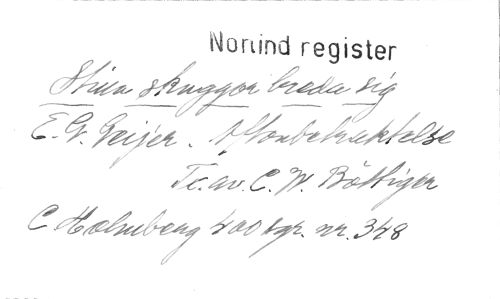 Norlind register
Stilla skuggor breda sig
E. G. Geijer. Aftonbetraktelse
Tc. av. C. W. Böttiger
C Holmberg 400 sgr. nr. 348